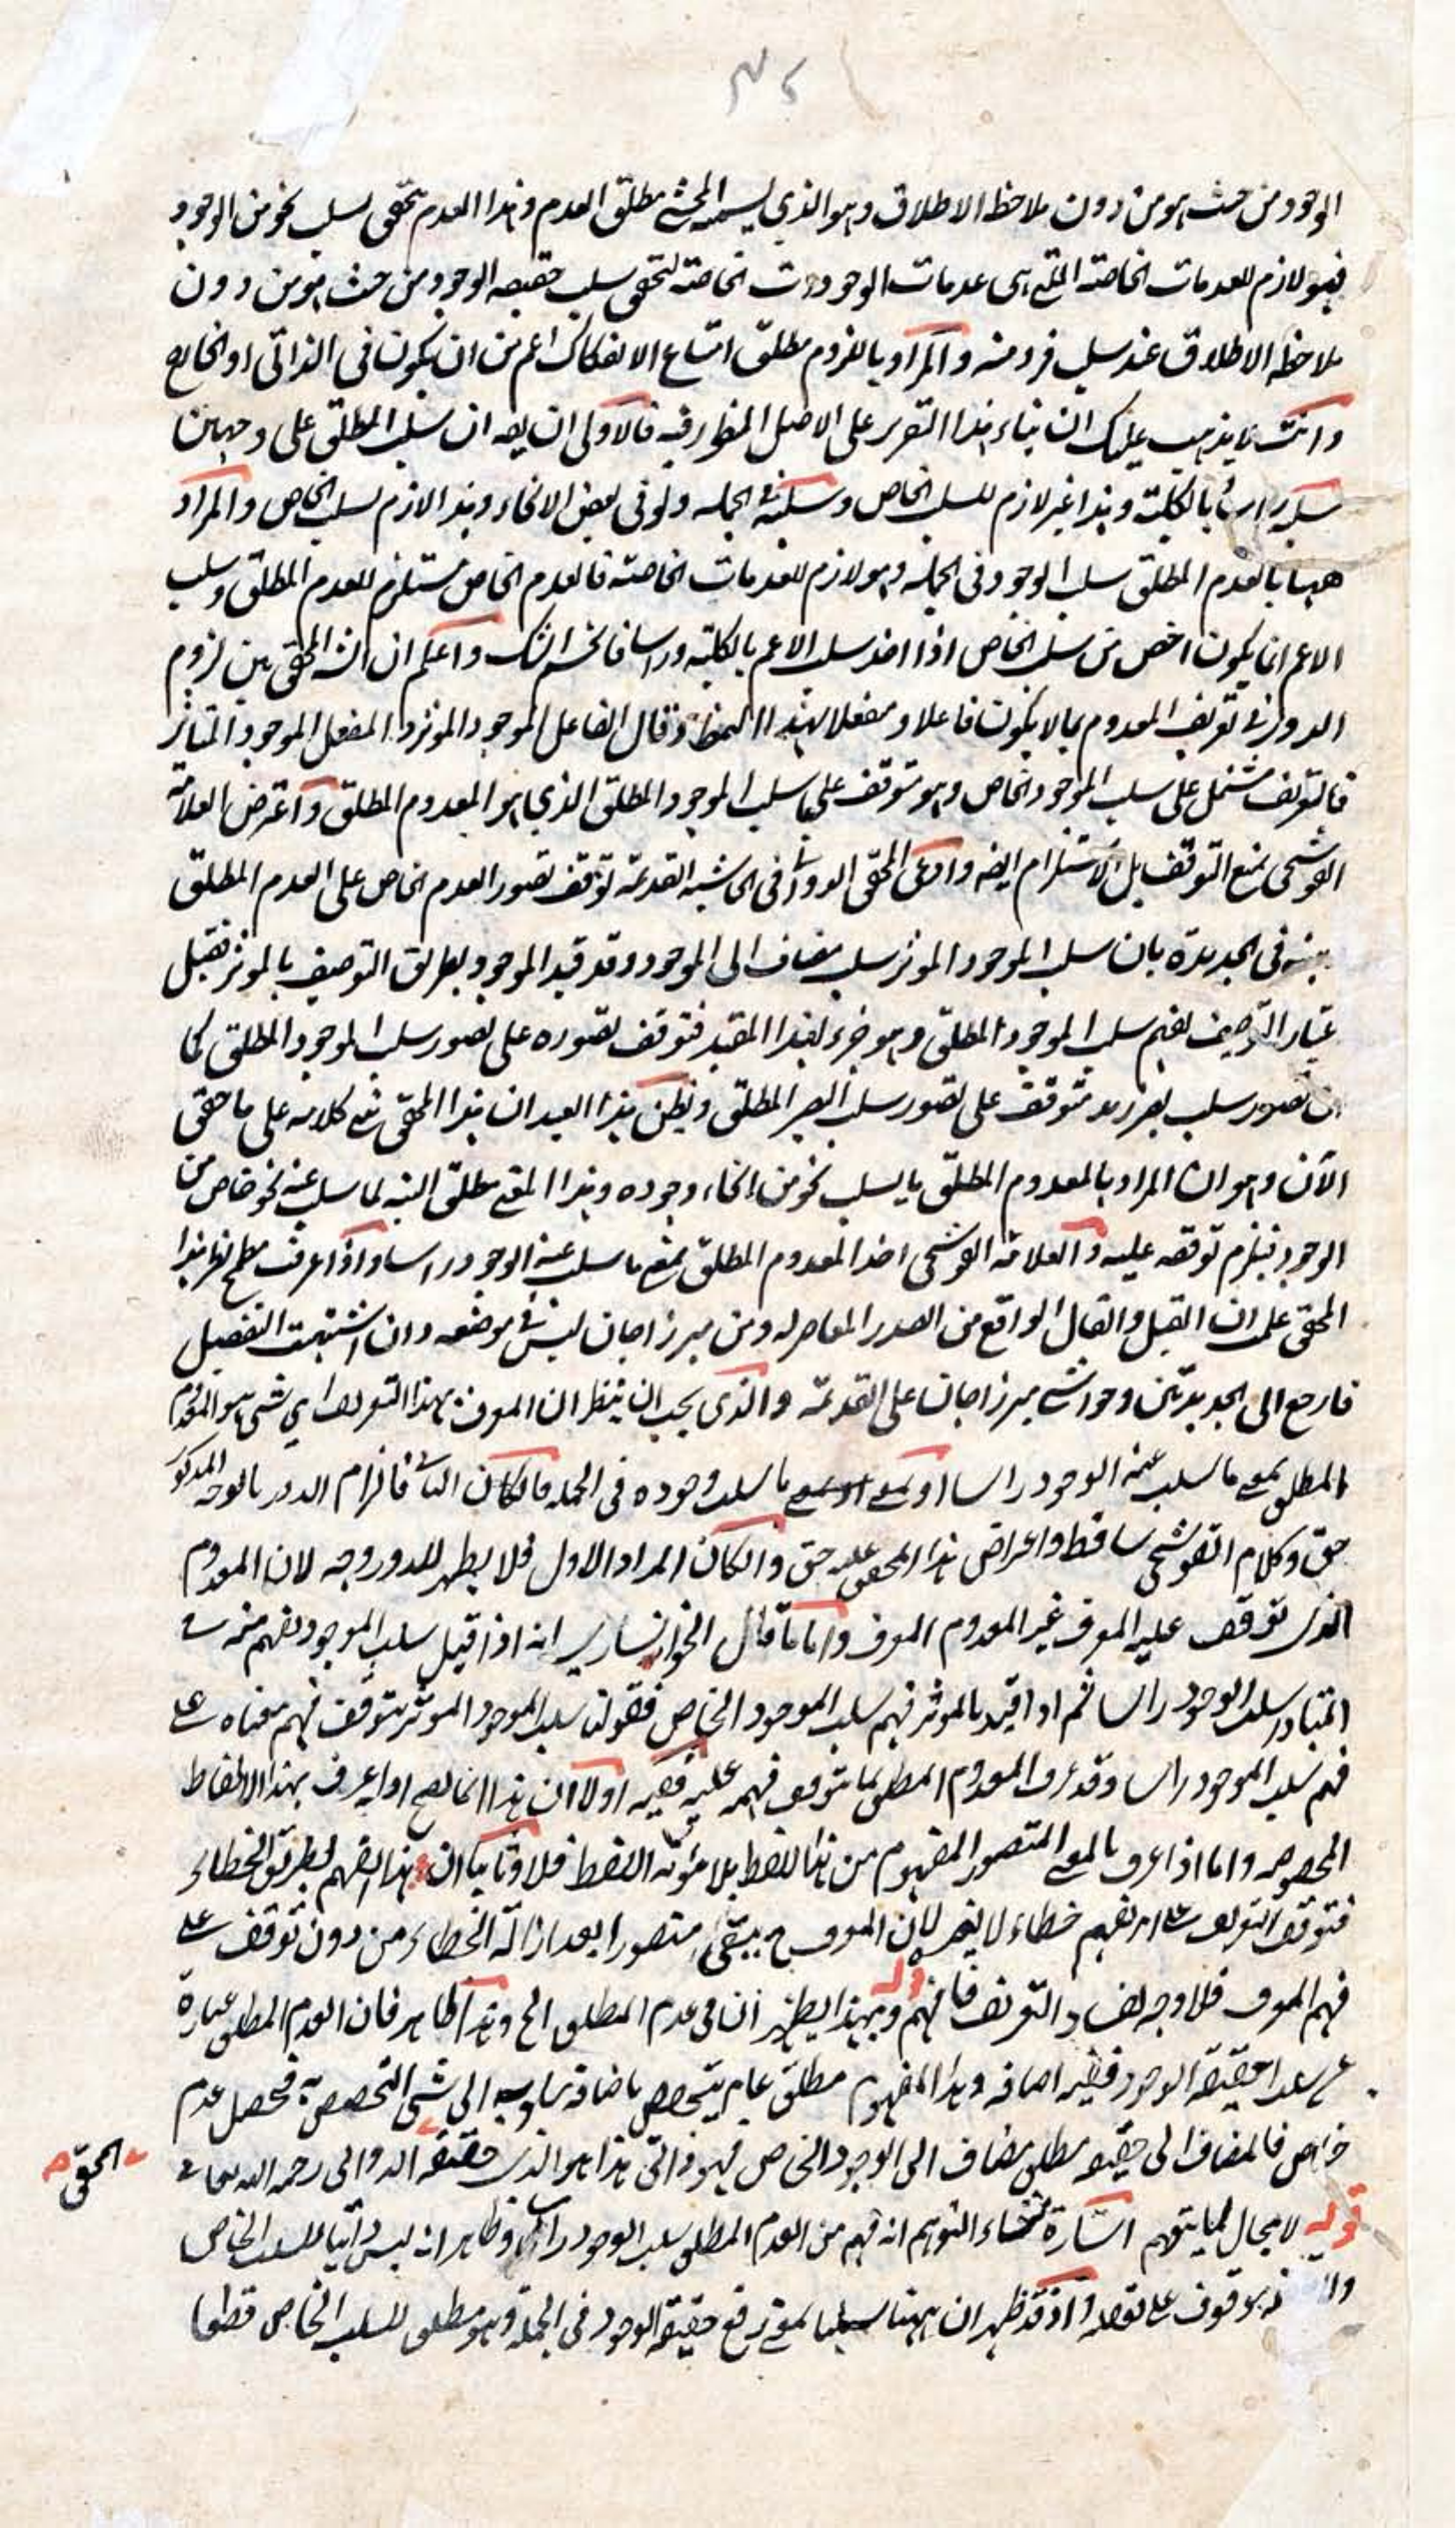 الوجود من حيث هو من دون ملاحظة الاطلاق وهو الذي يسميه المحشي مطلق العدم وهذا العدم يتحقق بسلب نحو من الوجود
فهو لازم للعدمات الخاصة التي هي عدمات الوجودات الخاصة لتحقق سلب حقيقة الوجود من حيث هو من دون
ملاحظة الاطلاق عند سلب فرد منه والمراد باللزوم مطلق امتناع الانفكاك اعم من ان يكون في الذاتي او الخارج
وانت لا يذهب عليك ان بناء هذا التقرير على الاصل المنظور فيه فالاولى ان يقه ان سلب المطلق على وجهين
سلبه راسا بالكلية وهذا غير لازم للسلب الخاص وسلبه في الجملة ولو في بعض الانحاء وهذا لازم لسلب الخاص والمراد
ههنا بالعدم المطلق سلب الوجود في الجملة وهو لازم للعدمات الخاصة فالعدم الخاص مستلزم للعدم المطلق وسلب
الاعم انما يكون اخص من سلب الخاص اذا اخذ سلب الاعم بالكلية وراسا فانحسم الشك واعلم ان الشه المحقق بين لزوم
الدور في تعريف المعدوم بما لا يكون فاعلا ومنفعلا بهذا النمط وقال الفاعل الموجود المؤثر والمنفعل الموجود المتاثر
فالتعريف مشتمل على سلب الموجود الخاص وهو متوقف على سلب الموجود المطلق الذي هو المعدوم المطلق واعترض العلامة
القوشجي بمنع التوقف بل الاستلزام ايضه وادعى المحقق الدواني في الحاشية القديمة توقف تصور العدم الخاص على العدم المطلق
بينه في الجديدة بان سلب الموجود المؤثر سلب مضاف الى الموجود وقد قيد الموجود بطريق التوصيف بالمؤثر فقبل
عتبار التوصيف يفهم سلب الموجود المطلق وهو جزء لهذا المقيد فتوقف تصوره على تصور سلب الموجود المطلق كما
ان تصور سلب بصر زيد متوقف على تصور سلب البصر المطلق ويظن هذا العبد ان هذا المحقق بنى كلامه على ما حقق
الآن وهو ان المراد بالمعدوم المطلق ما يسلب نحو من انحاء وجوده وهذا المعنى مطلق البته لما سلب عنه نحو خاص من
الوجود فيلزم توقفه عليه والعلامة القوشجي اخذ المعدوم المطلق بمعنى ما سلب عنه الوجود راسا واذا عرفت مطمح نظر هذا
المحقق علمت ان القيل والقال الواقع من الصدر المعاصر له ومن ميرزاجان ليس في موضعه وان اشتهيت التفصيل
فارجع الى الجديدتين وحواشي ميرزاجان على القديمة والذي يجب ان ينظر ان المعرف بهذا التعريف اي شيء هو المعدوم
المطلق بمعنى ما سلب عنه الوجود راسا او بمعنى ما سلب وجوده في الجملة فان كان الثاني فالزام الدور بالوجه المذكور
حق وكلام القوشجي ساقط واعتراض هذا المحقق عليه حق وان كان المراد الاول فلا يظهر للدور وجه لان المعدوم
الذي توقف عليه المعرف غير المعدوم المعرف واما ما قال الخوانساري انه اذا قيل سلب الموجود يفهم منه في
المتبادر سلب الوجود راسا ثم اذا قيد بالمؤثر فهم سلب الموجود الخاص فقولنا سلب الموجود المؤثر يتوقف فهم معناه على
فهم سلب الموجود راسا وقد عرف المعدوم المطلق بما يتوقف فهمه عليه ففيه اولا ان هذا انما يصح اذا عرف بهذا الالفاظ
المخصوصه واما اذا عرف بالمعنى المتصور المفهوم من هذا اللفظ بلا مؤنة اللفظ فلا وثانيا ان هذا الفهم بطريق الخطاء
فتوقف التعريف على امر يفهم خطاء لا يضر لان المعرف ح يبقى متصورا بعد ازالة الخطاء من دون توقف على
فهم المعرف فلا وجه لفساد التعريف فافهم قوله وبهذا يظهر ان في عدم المطلق الخ وهذا ظاهر فان العدم المطلق عبارة
عن سلب حقيقة الوجود ففيه اضافة وهذا المفهوم مطلق عام يتخصص باضافة ثانوية الى شيء التخصص فحصل عدم
خاص فالمضاف الى حقيقة مطلق مضاف الى الوجود الخاص فهو ذاتي هذا هو الذي حققه الدواني رحمه الله تعالى
المحقق
قوله لا مجال لما يتوهم اشارة لمنشاء التوهم انه فهم من العدم المطلق سلب الوجود راسا وظاهر انه ليس ذاتيا للسلب الخاص
موقوف على تعقله واذ قد ظهر ان ههنا سلبا بمعنى رفع حقيقة الوجود في الجملة وهو مطلق للسلب الخاص قطعا